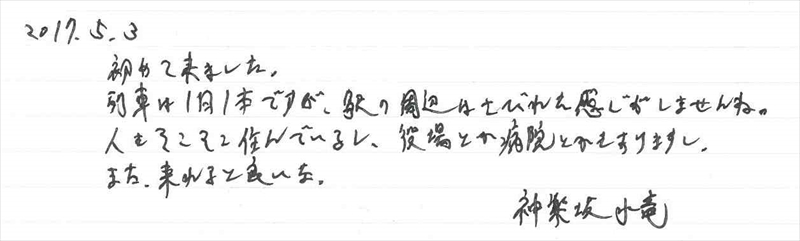 2017.5.3
初めて来ました。
列車は1日1本ですが、駅の周辺はさびれた感じがしませんね。
人もそこそこ住んでいるし、役場とか病院とかもありますし、
また、来れると良いな。
神楽坂小竜